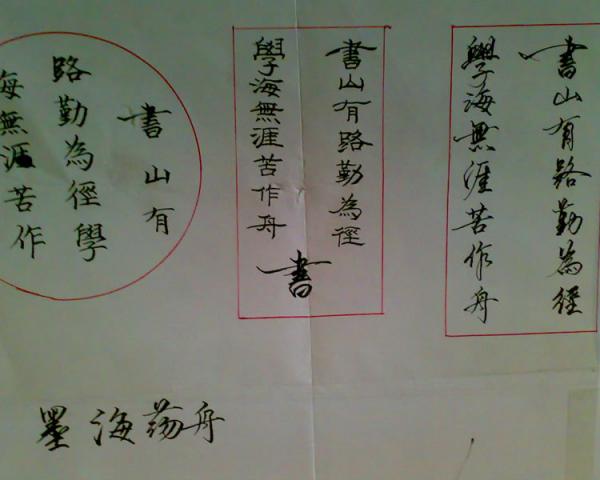 書山有路勤為徑
學海無涯苦作舟
書山有路勤為徑
學海無涯苦作舟
書
書山有
路勤為徑學
海無涯苦作
墨海荡舟